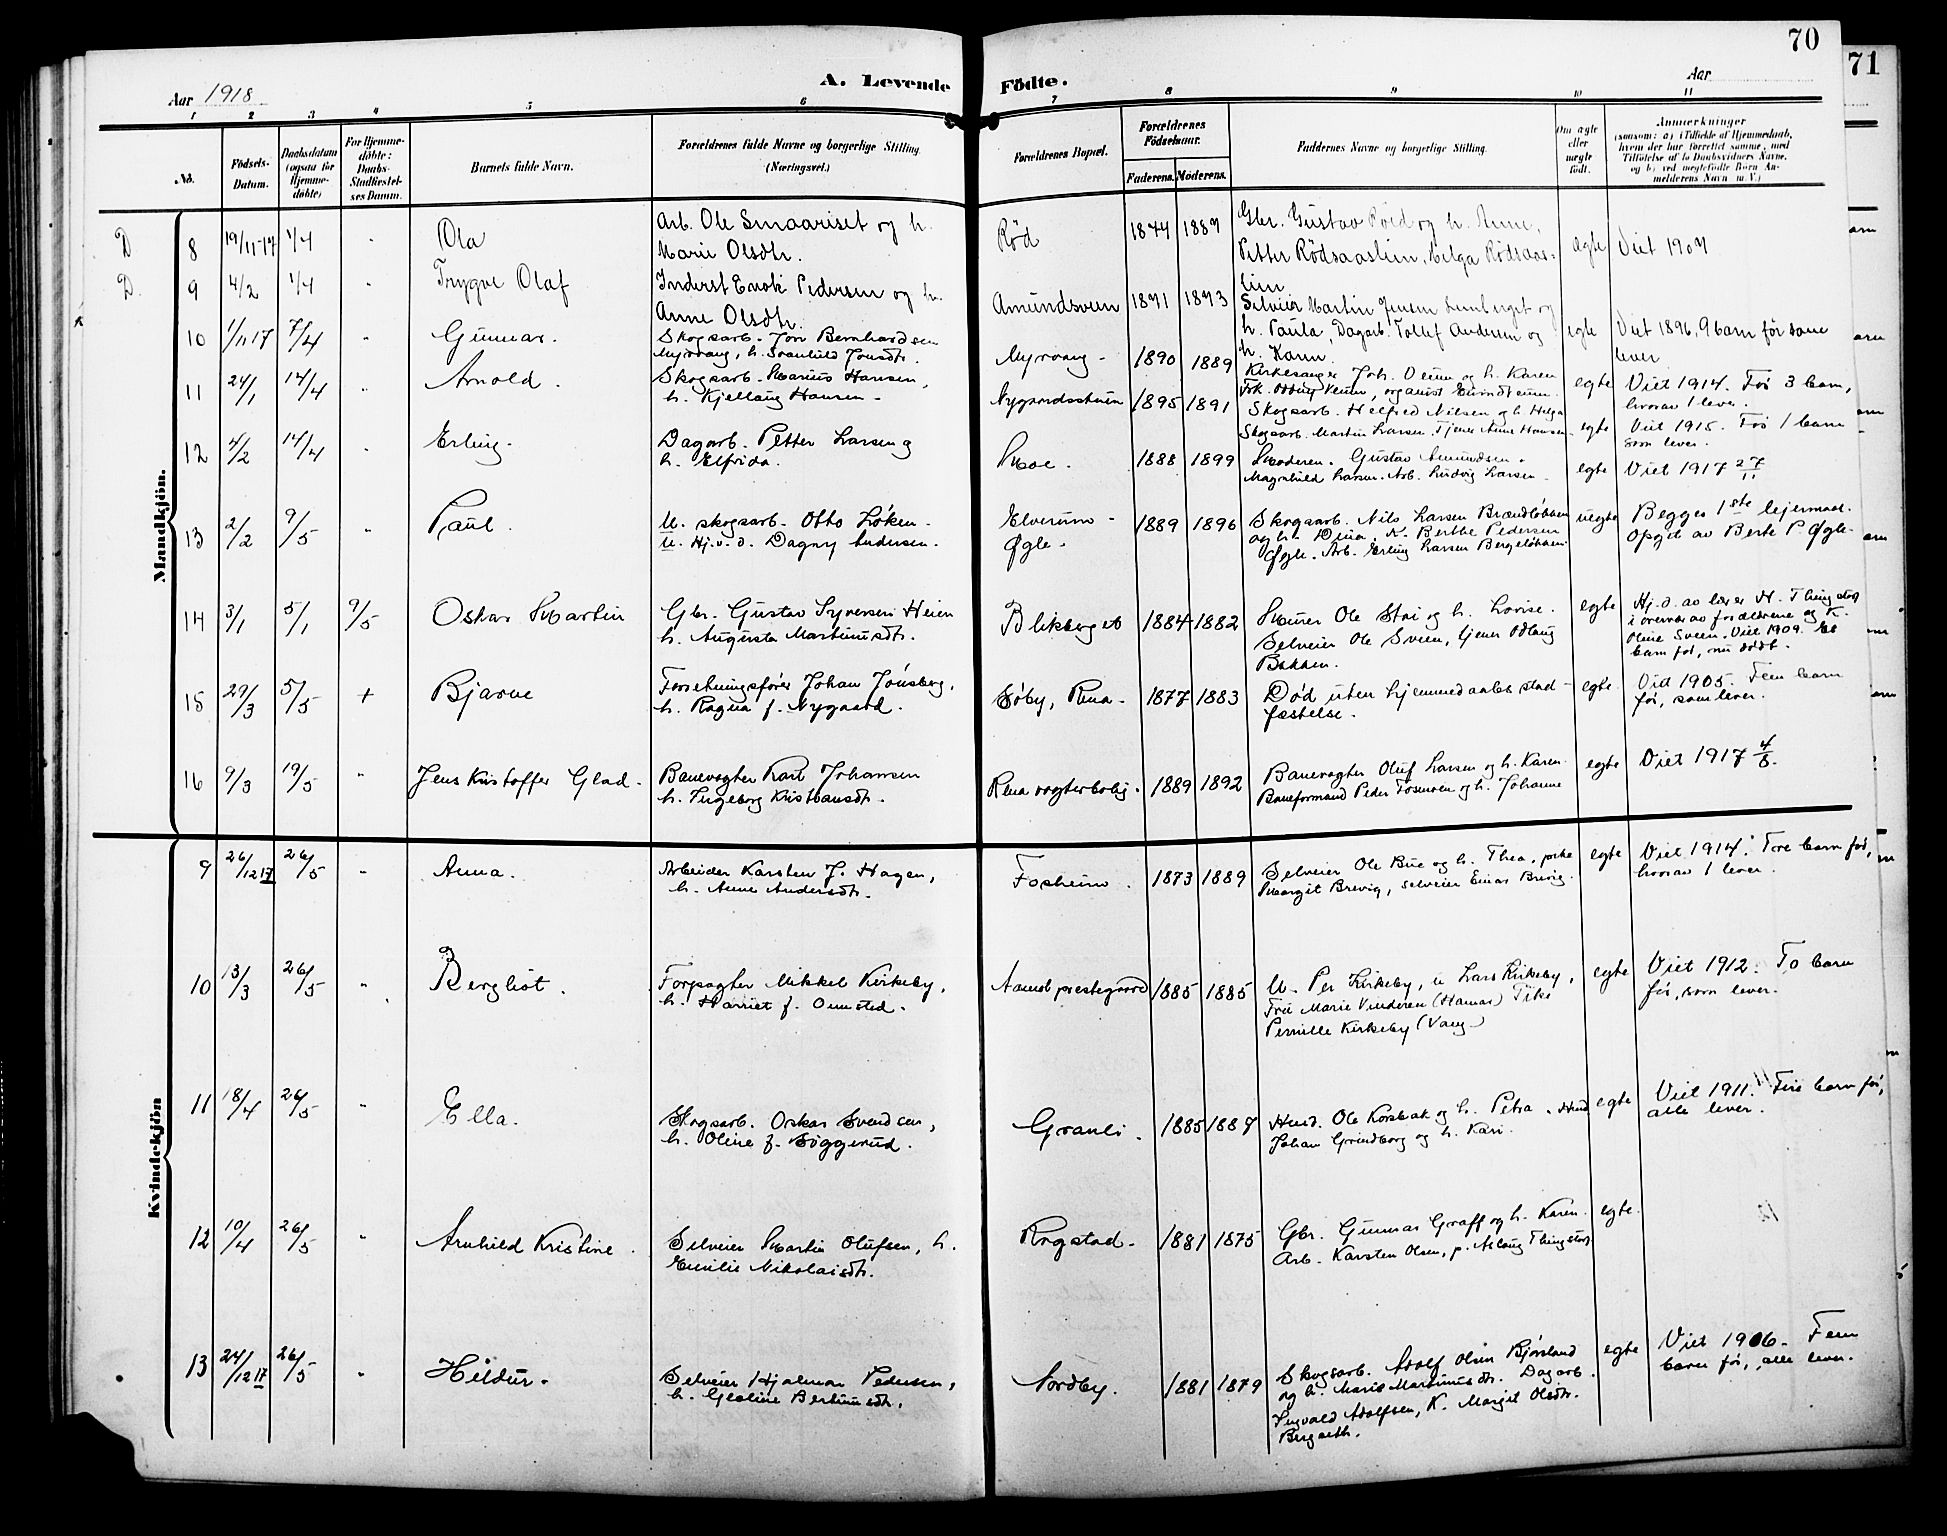 70
71
Aar 1918
A. Levende Födte.
Aar
1 2 3 4 5 6 7 8 9 10 11
No.
Födsels-Datum.
Daabsdatum (ogsaa for Hjemme-döbte)
For Hjemme-döbte: Daabs-Stadfæstel-ses Datum.
Barnets fulde Navn.
Forældrenes fulde Navne og borgerlige Stilling (Næringsvei.)
Forældrenes Bopæl.
Forældrenes Födselsaar.
Faderens. Moderens.
Faddernes Navne og borgerlige Stilling.
Om ægte eller uægte födt.
Anmerkninger
(saasom: a) i Tilfælde af Hjemmedaab, hvem der har forrettet samme, med Tilföielse af to Daabsvidners Navne, og b) ved uægtefödte Börn An-melderens Navn m. V.)
Mandkjön.
D 8 19/11-17 1/4 " Ola
Arb. Ole Smaariset og h.
Marie Olsdtr.
Rød 1874 1887
Gbr. Gustav Röed og h. Anne,
Petter Rödsaaslien, Helga Rödsaas-
lien
ægte Viet 1907
D. 9 4/2 1/4 " Trygve Olaf
Inderst Enok Pedersen og h.
Anne Olsdtr.
Amundsveen 1871 1873
Selveier Martin Jensen Lemberget og
h. Paula, Dagarb. Tollef Andersen og
h. Karen.
egte Viet 1896, 9 barn før som
lever
10 1/11 17 7/4 " Gunnar.
Skogsarb. Jon Bernhardsen
Myrvang, h. Svanhild Jonsdtr.
Myrvang - 1890 1889
Kirkesanger Joh. Veum og h. Karen
Frk. Veum, organist Veum.
egte Viet 1914. Før 3 barn,
hvorav 1 lever.
11 24/1 14/4 " Arnold.
Skogsarb. Marius Hansen,
h. Kjellaug Hansen -
Nygaardsstuen 1895 1891
Skogsarb. Helfred Nilsen og h. Helga
Skogsarb. Martin Larsen. Tjener Anne Hansen
egte Viet 1915. Før 1 barn
som lever.
12 4/2 14/4 " Erling.
Dagarb. Petter Larsen og
h. Elfrida.
Moe. 1888 1899
Moderen. Gustav Amundsen.
Magnhild Larsen. Arb. Ludvig Larsen
egte Viet 1917 27/11
13 2/2 9/5 " Paul.
U. skogsarb. Otto Løken -
U. Hj.v.d. Dagny Andersen.
Elverum -
Øgle. 1889 1896
Skogsarb. Nils Larsen Brændløkken
og h. Dina, K. Berthe Pedersen
Øgle. Arb. Erling Larsen Bergeløkken.
uegte Begges 1ste leiermaal.
Opgit av Berte P. Øgle.
14 3/1 5/1 9/5 Oskar Martin
Gbr. Gustav Syversen Heien
h. Augusta Martinusdtr.
Blikberget 1884 1882
Murer Ole Stai og h. Lovise.
Selveier Ole Sveen, tjener Odlaug
Bakken.
egte Hj.d. av lærer H. Thingstad
i overvær av forældrene og K.
Oline Sveen. Viet 1909. Et
barn før, nu dødt.
15 29/3 5/5 + Bjarne
Forretningsfører Johan Jonsberg,
h. Ragna f. Nygaard.
Søby, Rena - 1877 1883
Død uten hjemmedaabs stad-
fæstelse.
egte. Viet 1905. Fem barn
før, som lever.
16 9/3 19/5 " Jens Kristoffer Glad.
Banevogter Karl Johansen
h. Ingeborg Kristiansdtr.
Rena vogterbolig. 1889 1892
Banevogter Oluf Larsen og h. Karen.
Baneformand Peder Fosmoen og h. Johanne
egte Viet 1917 4/8.
Kvindekjön
9 26/12 17 26/5 " Anna.
Arbeider Karsten J. Hagen,
h. Anne Andersdtr.
Fosheim. 1873 1889
Selveier Ole Bue og h. Thea. pike
Margit Brevig, selveier Einar Brevig.
egte Viet 1914. Tre barn før,
hvorav 1 lever.
10 13/3 26/5 " Bergliot.
Forpagter Mikkel Kirkeby,
h. Harriet f. Omsted.
Aamot prestegaard 1885 1885
U. Per Kirkeby, u Lars Kirkeby,
Frü Marie Vinderen (Hamar) Pike
Pernille Kirkeby (Vang)
egte Viet 1912. To barn
før, som lever.
11 18/4 26/5 " Ella.
Skogsarb. Oskar Svendsen,
h. Oline f. Søggerud.
Granli. 1885 1887
Husd. Ole Korsbak og h. Petra. Husd
Johan Grindborg og h. Kari.
egte Viet 1911. Fire barn før,
alle lever.
12 10/4 26/5 " Arnhild Kristine.
Selveier Martin Olufsen, h.
Emilie Nikolaisdtr.
Rogstad. 1881 1875
Gbr. Gunnar Graff og h. Karen.
Arb. Karsten Olsen, p. Aslaug Thingstad
egte.
13 24/12 17 26/5 " Hildur.
Selveier Hjalmar Pedersen,
h. Gealine Bertinusdtr.
Nordby. 1881 1879
Skogsarb. Adolf Olsen Bjørsland
og h. Marie Martinusdtr. Dagarb.
Ingvald Adolfsen, K. Margit Olsdtr.
Bergseth.
egte Viet 1906. Fem
barn før, alle lever.